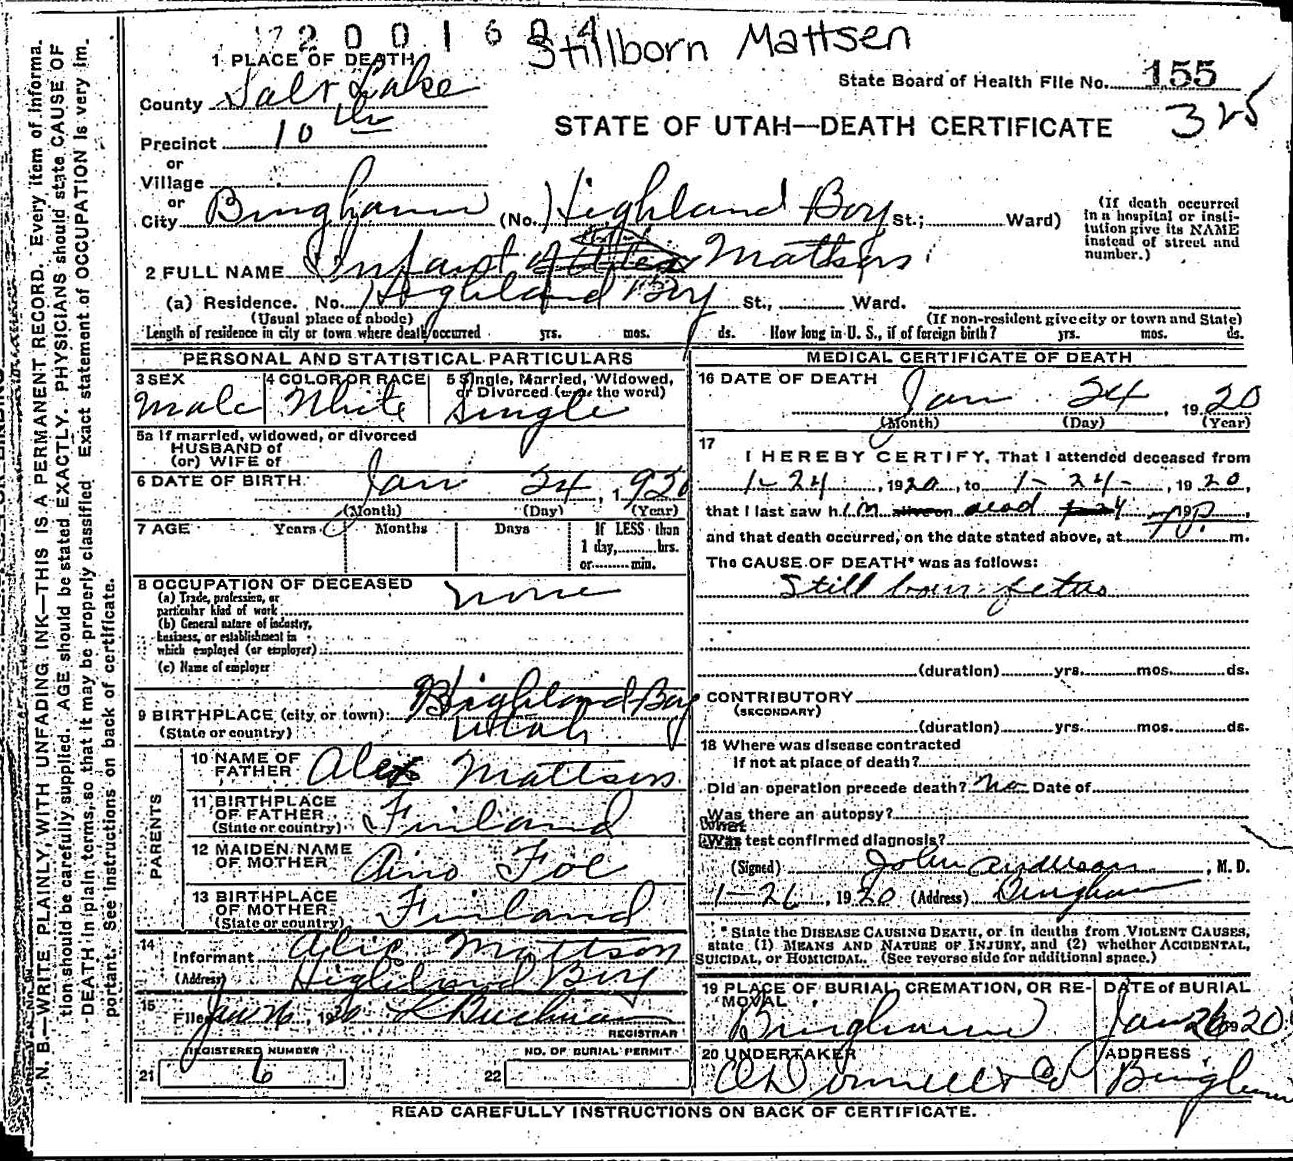 2001604
Stillborn Mattsen
1 PLACE OF DEATH
State Board of Health File No. 155
County Salt Lake
325
STATE OF UTAH—DEATH CERTIFICATE
Precinct 10th
or
Village
or
City Bingham (No. Highland Boy St.; Ward)
(If death occurred in a hospital or institution give its NAME instead of street and number.)
2 FULL NAME Infant Mattson
(a) Residence. No. Highland Boy St., Ward.
(Usual place of abode) (If non-resident give city or town and State)
Length of residence in city or town where death occurred yrs. mos. ds. How long in U. S., if of foreign birth? yrs. mos. ds.
PERSONAL AND STATISTICAL PARTICULARS
3 SEX Male
4 COLOR OR RACE White
5 Single, Married, Widowed, or Divorced (write the word) Single
5a If married, widowed, or divorced
HUSBAND of
(or) WIFE of
6 DATE OF BIRTH Jan 24, 1920
(Month) (Day) (Year)
7 AGE Years 0 Months Days If LESS than
1 day, hrs.
or min.
8 OCCUPATION OF DECEASED none
(a) Trade, profession, or
particular kind of work
(b) General nature of industry,
business, or establishment in
which employed (or employer)
(c) Name of employer
9 BIRTHPLACE (city or town) Highland Boy
(State or country) Utah
PARENTS
10 NAME OF FATHER Alex Mattson
11 BIRTHPLACE OF FATHER Finland
(State or country)
12 MAIDEN NAME OF MOTHER Aino Foe
13 BIRTHPLACE OF MOTHER Finland
(State or country)
14 Informant Alic Mattson
(Address) Highland Boy
15 Filed Jan 26 1920 Buchman
REGISTRAR
REGISTERED NUMBER
21 6
NO. OF BURIAL PERMIT
22
MEDICAL CERTIFICATE OF DEATH
16 DATE OF DEATH Jan 24, 1920
(Month) (Day) (Year)
17
I HEREBY CERTIFY, That I attended deceased from
1-24, 1920, to 1-24-, 1920,
that I last saw him alive on dead 1-24
and that death occurred, on the date stated above, at 7 P. m.
The CAUSE OF DEATH* was as follows:
Still born fetus
(duration) yrs. mos. ds.
CONTRIBUTORY
(SECONDARY)
(duration) yrs. mos. ds.
18 Where was disease contracted
if not at place of death?
Did an operation precede death? No Date of
Was there an autopsy?
What test confirmed diagnosis?
(Signed) John Anderson, M. D.
1-26, 1920 (Address) Bingham
* State the DISEASE CAUSING DEATH, or in deaths from VIOLENT CAUSES,
state (1) MEANS AND NATURE OF INJURY, and (2) whether ACCIDENTAL,
SUICIDAL, or HOMICIDAL. (See reverse side for additional space.)
19 PLACE OF BURIAL, CREMATION, OR REMOVAL Bingham
DATE of BURIAL Jan 26 1920
20 UNDERTAKER O'Donnell & Co
ADDRESS Bingham
READ CAREFULLY INSTRUCTIONS ON BACK OF CERTIFICATE.
N. B.—WRITE PLAINLY, WITH UNFADING INK—THIS IS A PERMANENT RECORD. Every item of informa-
tion should be carefully supplied. AGE should be stated EXACTLY. PHYSICIANS should state CAUSE OF
DEATH in plain terms, so that it may be properly classified. Exact statement of OCCUPATION is very im-
portant. See instructions on back of certificate.